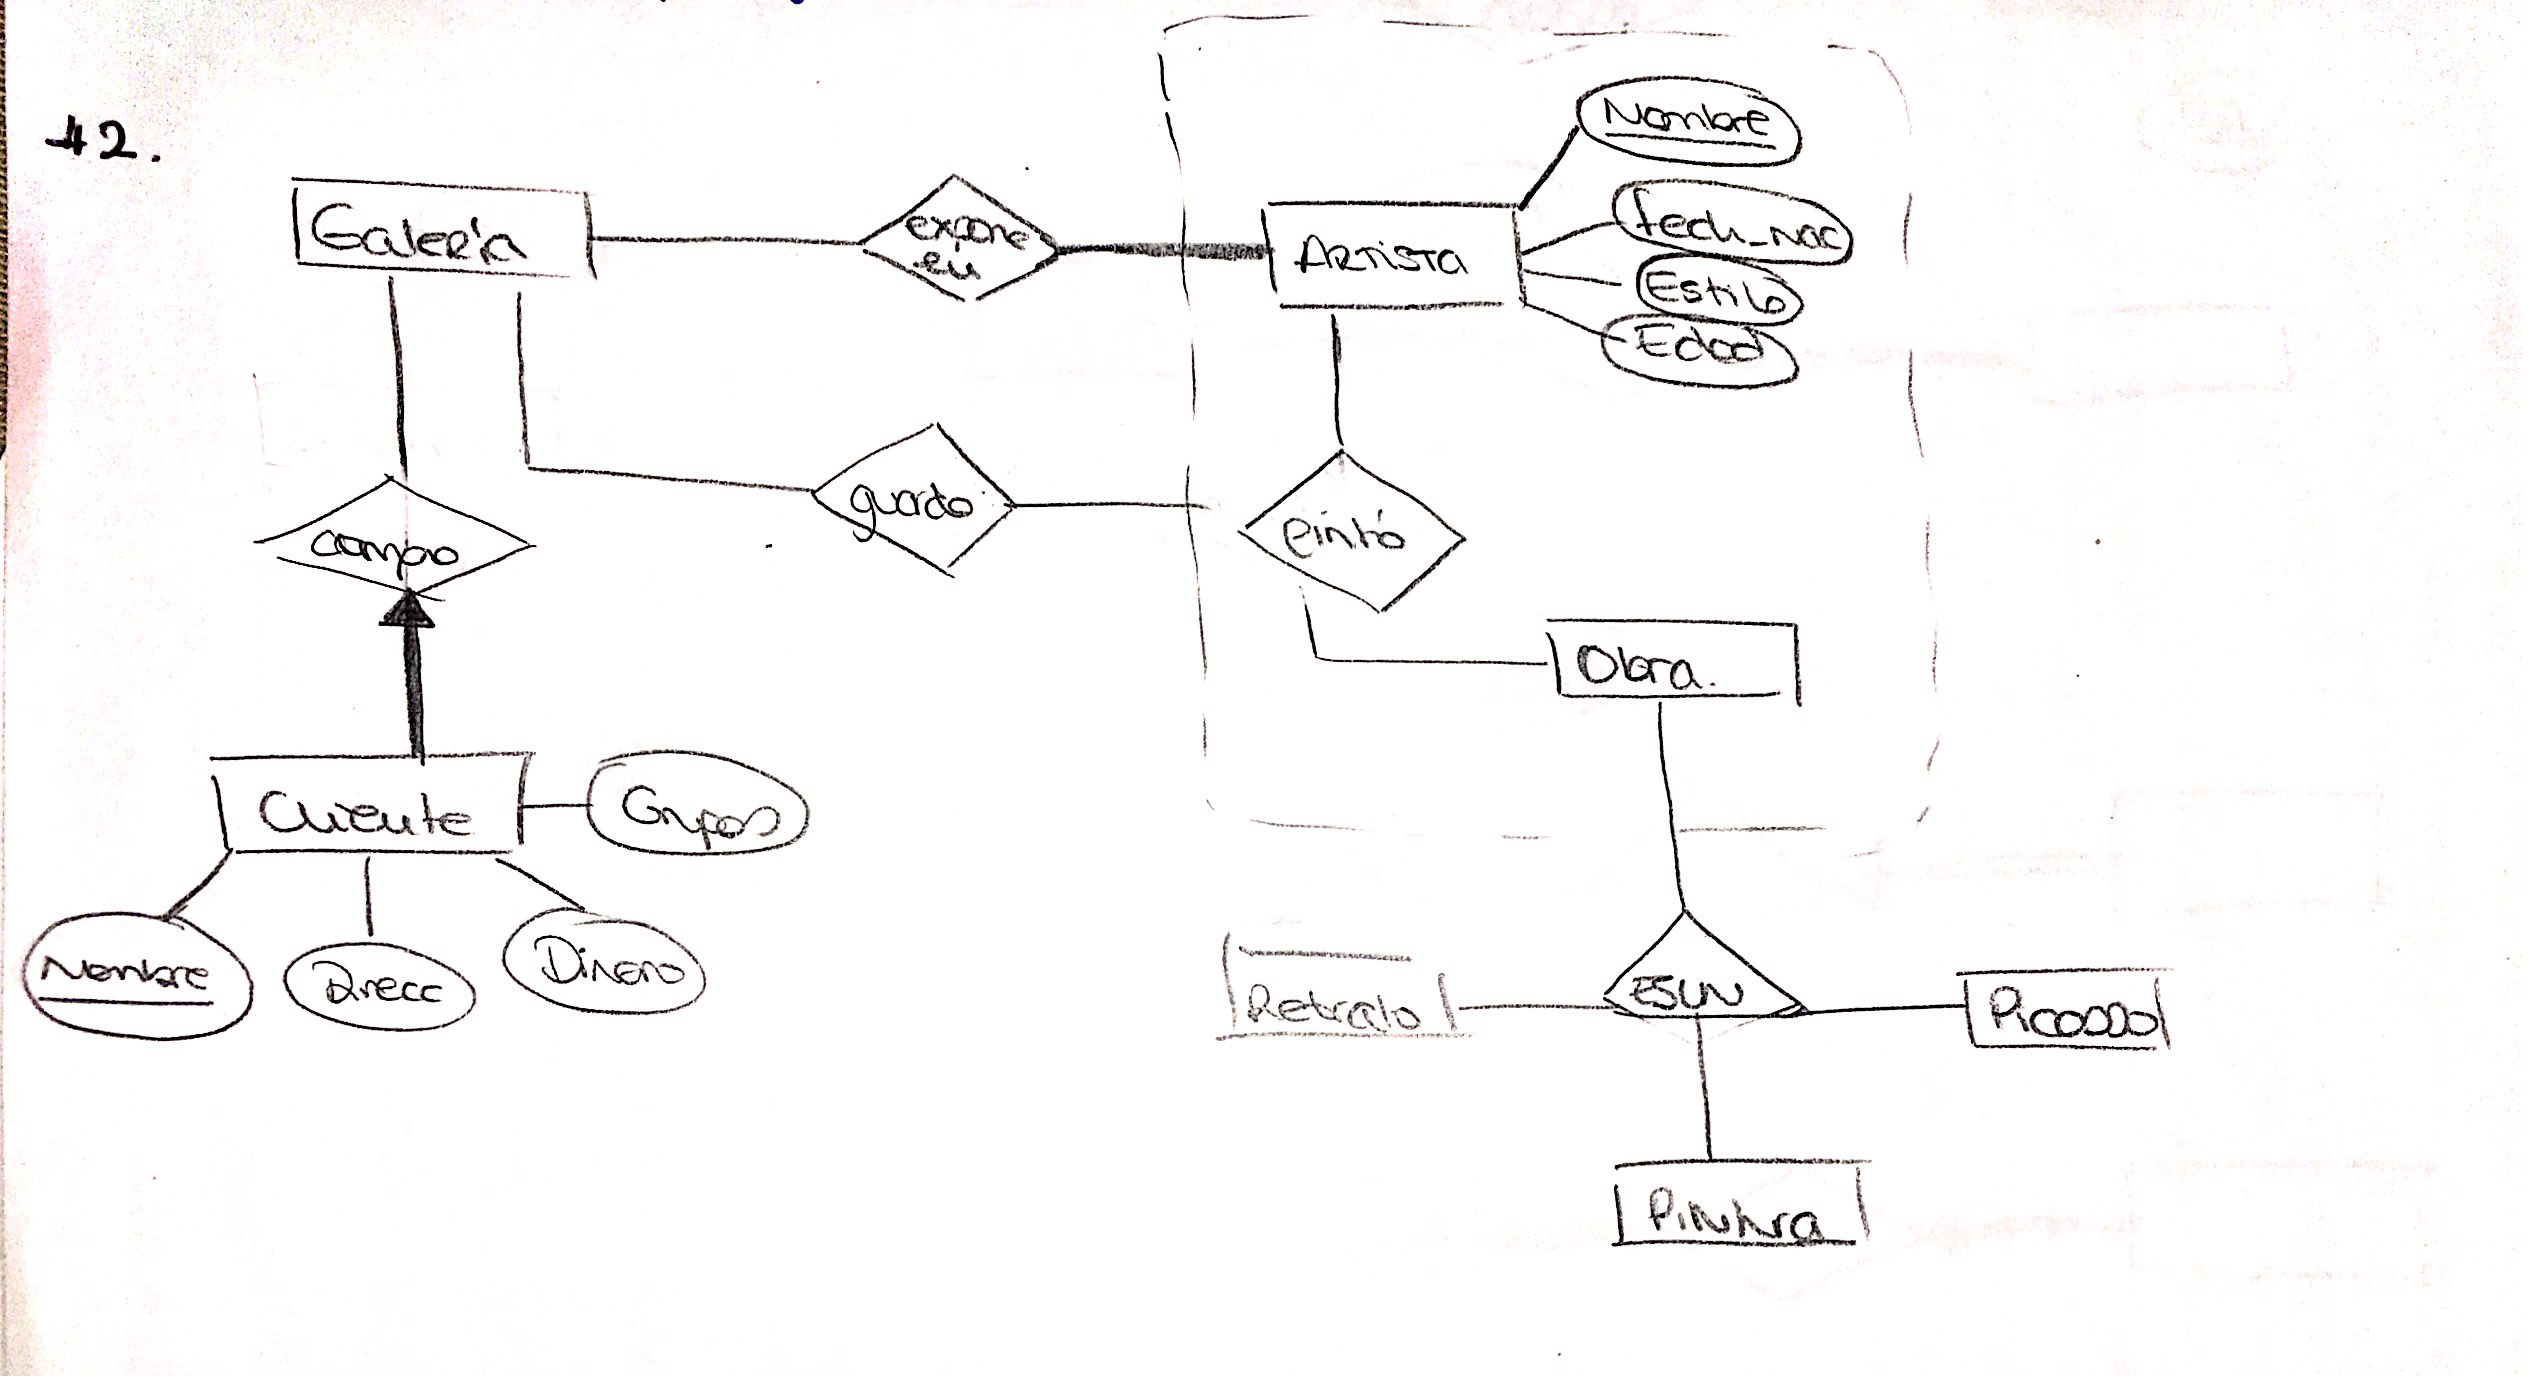 42.
Galería
expone
en
Artista
Nombre
fech_nac
Estilo
Edad
guarda
pintó
Obra.
Cliente
Nombre
Direcc
Dinero
ESUN
Retrato
Picasso
Pintura